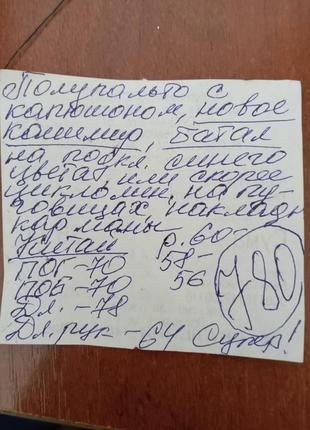 Полупальто с
капюшоном, новое
кашемир, батал
на подкл. синего
цвета, или скорее
цикломен, на пу-
говицах накладн
карманы
Китай р. 60-
ПОГ-70 58-
ПОБ-70 56
Дл.-78 780
Дл. рук-64 Супер!